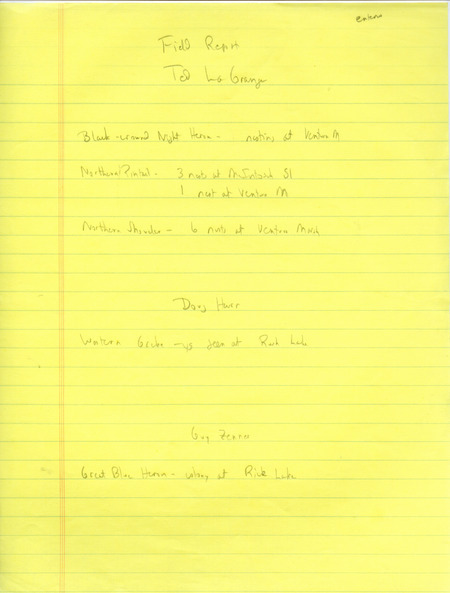 Field Report
Ted LaGrange
Black-crowned Night Heron - nesting at Ventura M
Northern Pintail - 3 nests at McIntosh Sl
1 nest at Ventura M
Northern Shoveler - 6 nests at Ventura Marsh
Doug Harr
Western Grebe - ys seen at Rush Lake
Guy Zenner
Great Blue Heron - colony at Rice Lake